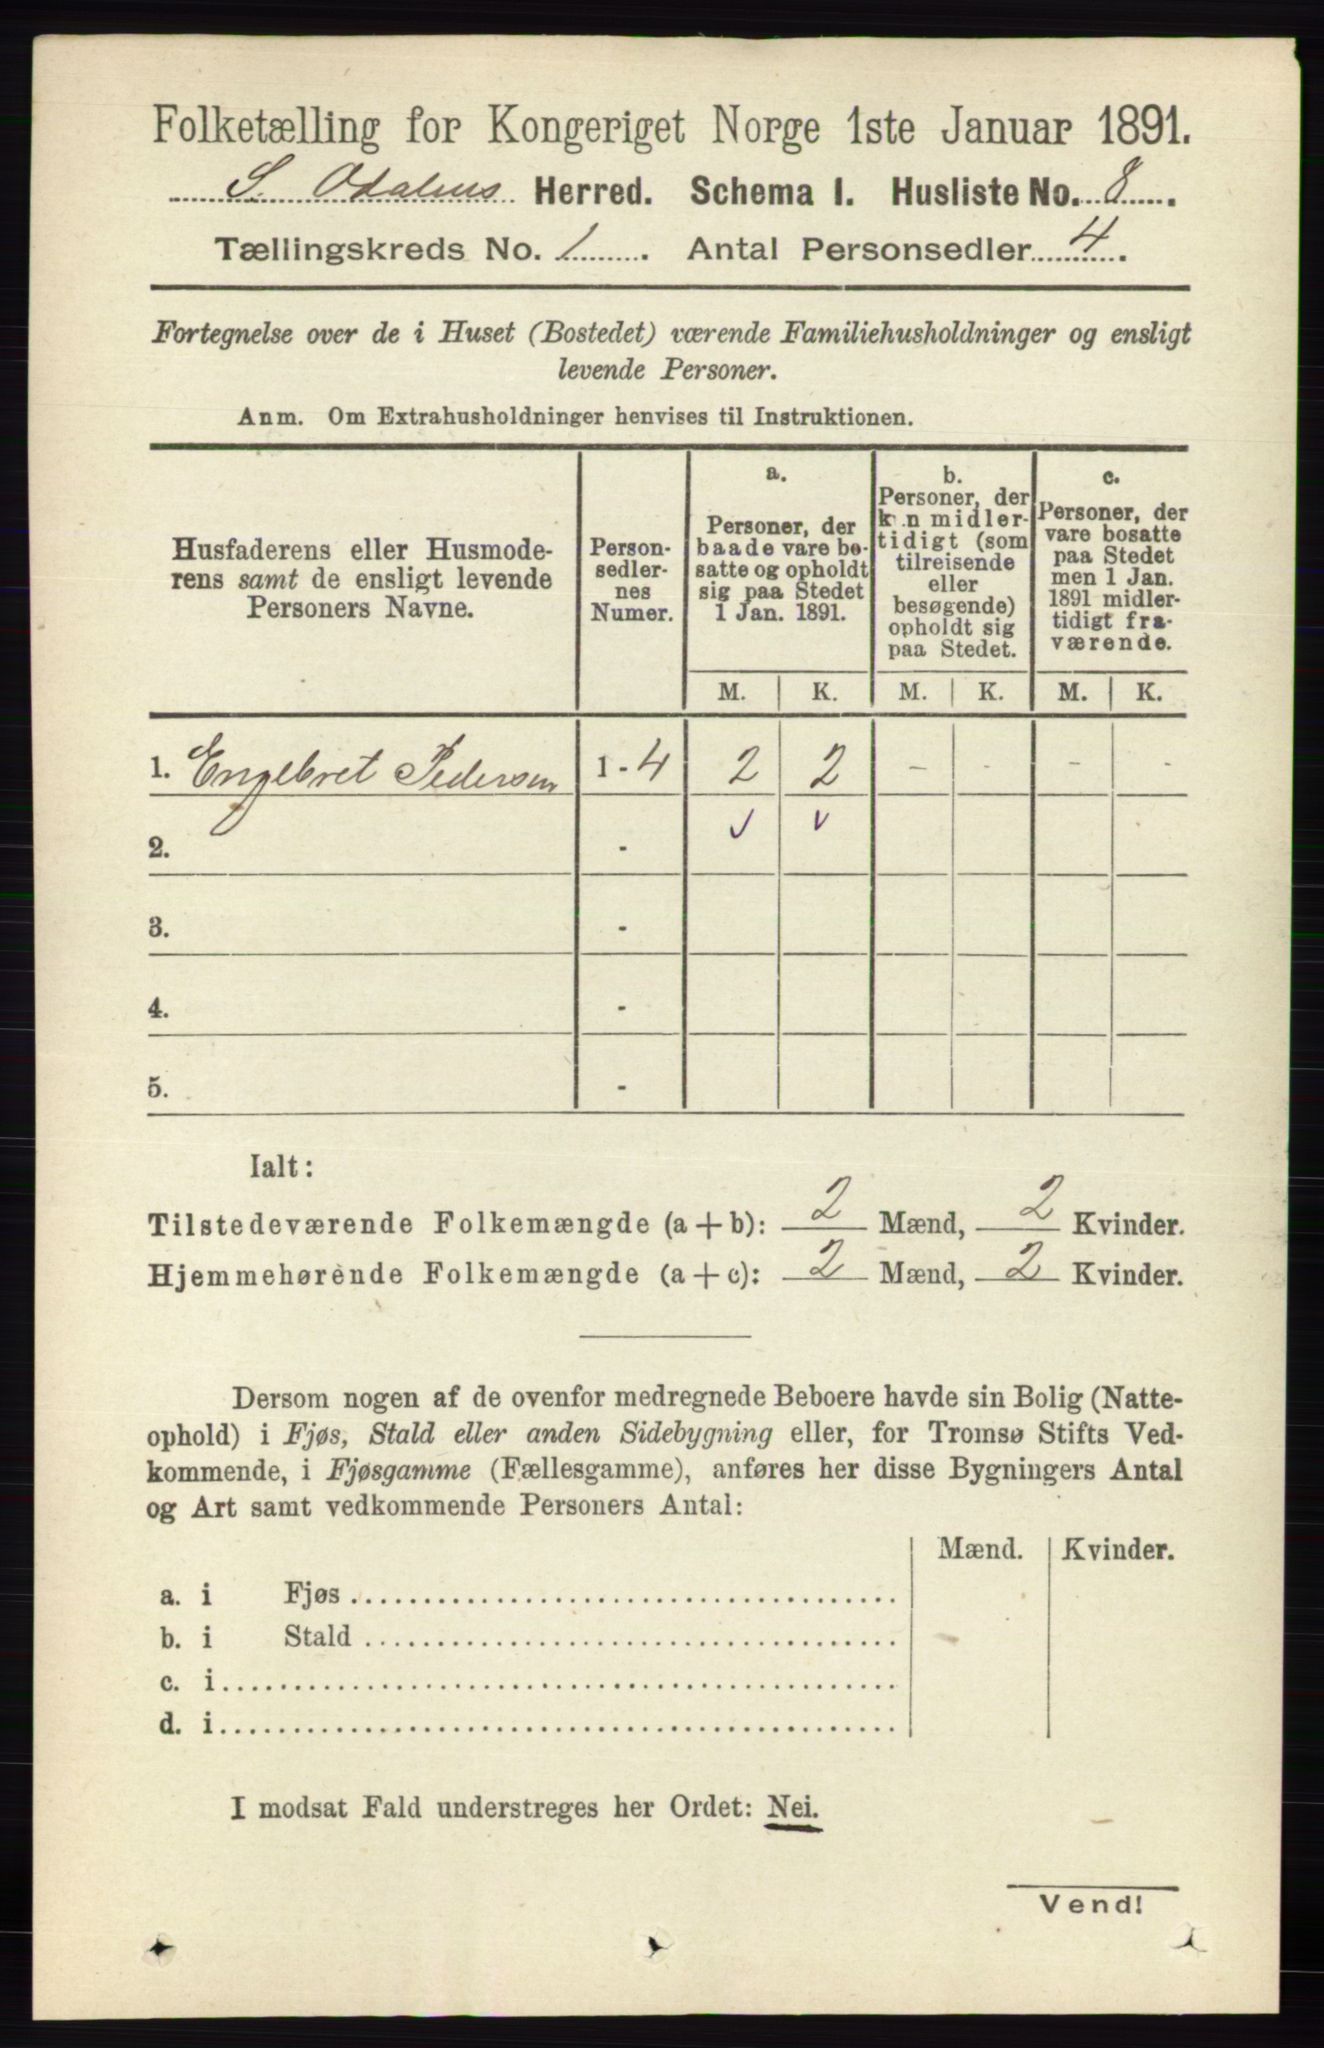 Folketælling for Kongeriget Norge 1ste Januar 1891.
S. Odalens Herred. Schema I. Husliste No. 8.
Tællingskreds No. 1. Antal Personsedler 4.
Fortegnelse over de i Huset (Bostedet) værende Familiehusholdninger og ensligt
levende Personer.
Anm. Om Extrahusholdninger henvises til Instruktionen.
Husfaderens eller Husmode-
rens samt de ensligt levende
Personers Navne.
Person-
sedler-
nes
Numer.
a.
Personer, der
baade vare bo-
satte og opholdt
sig paa Stedet
1 Jan. 1891.
b.
Personer, der
kun midler-
tidigt (som
tilreisende
eller
besøgende)
opholdt sig
paa Stedet.
c.
Personer, der
vare bosatte
paa Stedet
men 1 Jan.
1891 midler-
tidigt fra-
værende.
M. K. M. K. M. K.
1. Engebret Pedersen 1 - 4 2 2 - - - -
2. -
3. -
4. -
5. -
Ialt:
Tilstedeværende Folkemængde (a + b): 2 Mænd, 2 Kvinder.
Hjemmehørende Folkemængde (a + c): 2 Mænd, 2 Kvinder.
Dersom nogen af de ovenfor medregnede Beboere havde sin Bolig (Natte-
ophold) i Fjøs, Stald eller anden Sidebygning eller, for Tromsø Stifts Ved-
kommende, i Fjøsgamme (Fællesgamme), anføres her disse Bygningers Antal
og Art samt vedkommende Personers Antal:
Mænd. Kvinder.
a. i Fjøs
b. i Stald
c. i
d. i
I modsat Fald understreges her Ordet: Nei.
Vend!